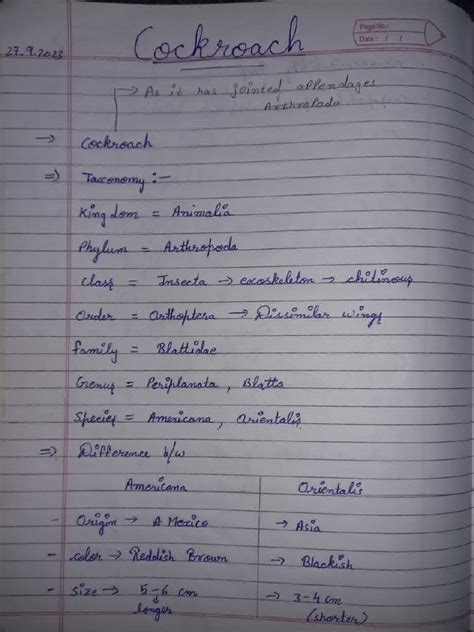 Page No.:
Date: / /
27.9.2023
Cockroach
As it has jointed appendages
Arthropoda
→ Cockroach
⇒ Taxonomy :-
Kingdom = Animalia
Phylum = Arthropoda
Class = Insecta → exoskeleton → chitinous
Order = Orthoptera → Dissimilar wings
Family = Blattidae
Genus = Periplanata, Blatta
Species = Americana, Orientalis
⇒ Difference b/w
Americana Orientalis
- Origin → A Mexico → Asia
- color → Reddish Brown → Blackish
- Size → 5-6 cm → 3-4 cm
longer (shorter)